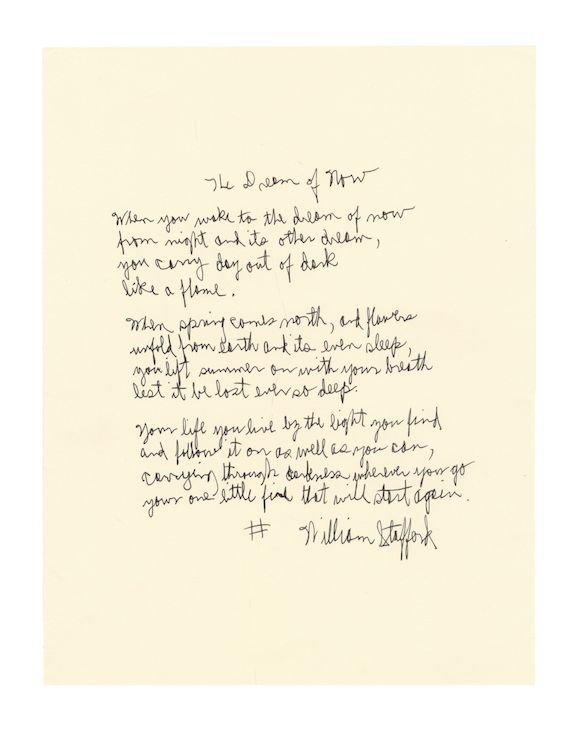 The Dream of Now
When you wake to the dream of now
from night and its other dream,
you carry day out of dark
like a flame.
When spring comes north, and flowers
unfold from earth and its even sleep,
you lift summer on with your breath
lest it be lost ever so deep.
Your life you live by the light you find
and follow it on as well as you can,
carrying through darkness wherever you go
your one little fire that will start again.
# William Stafford